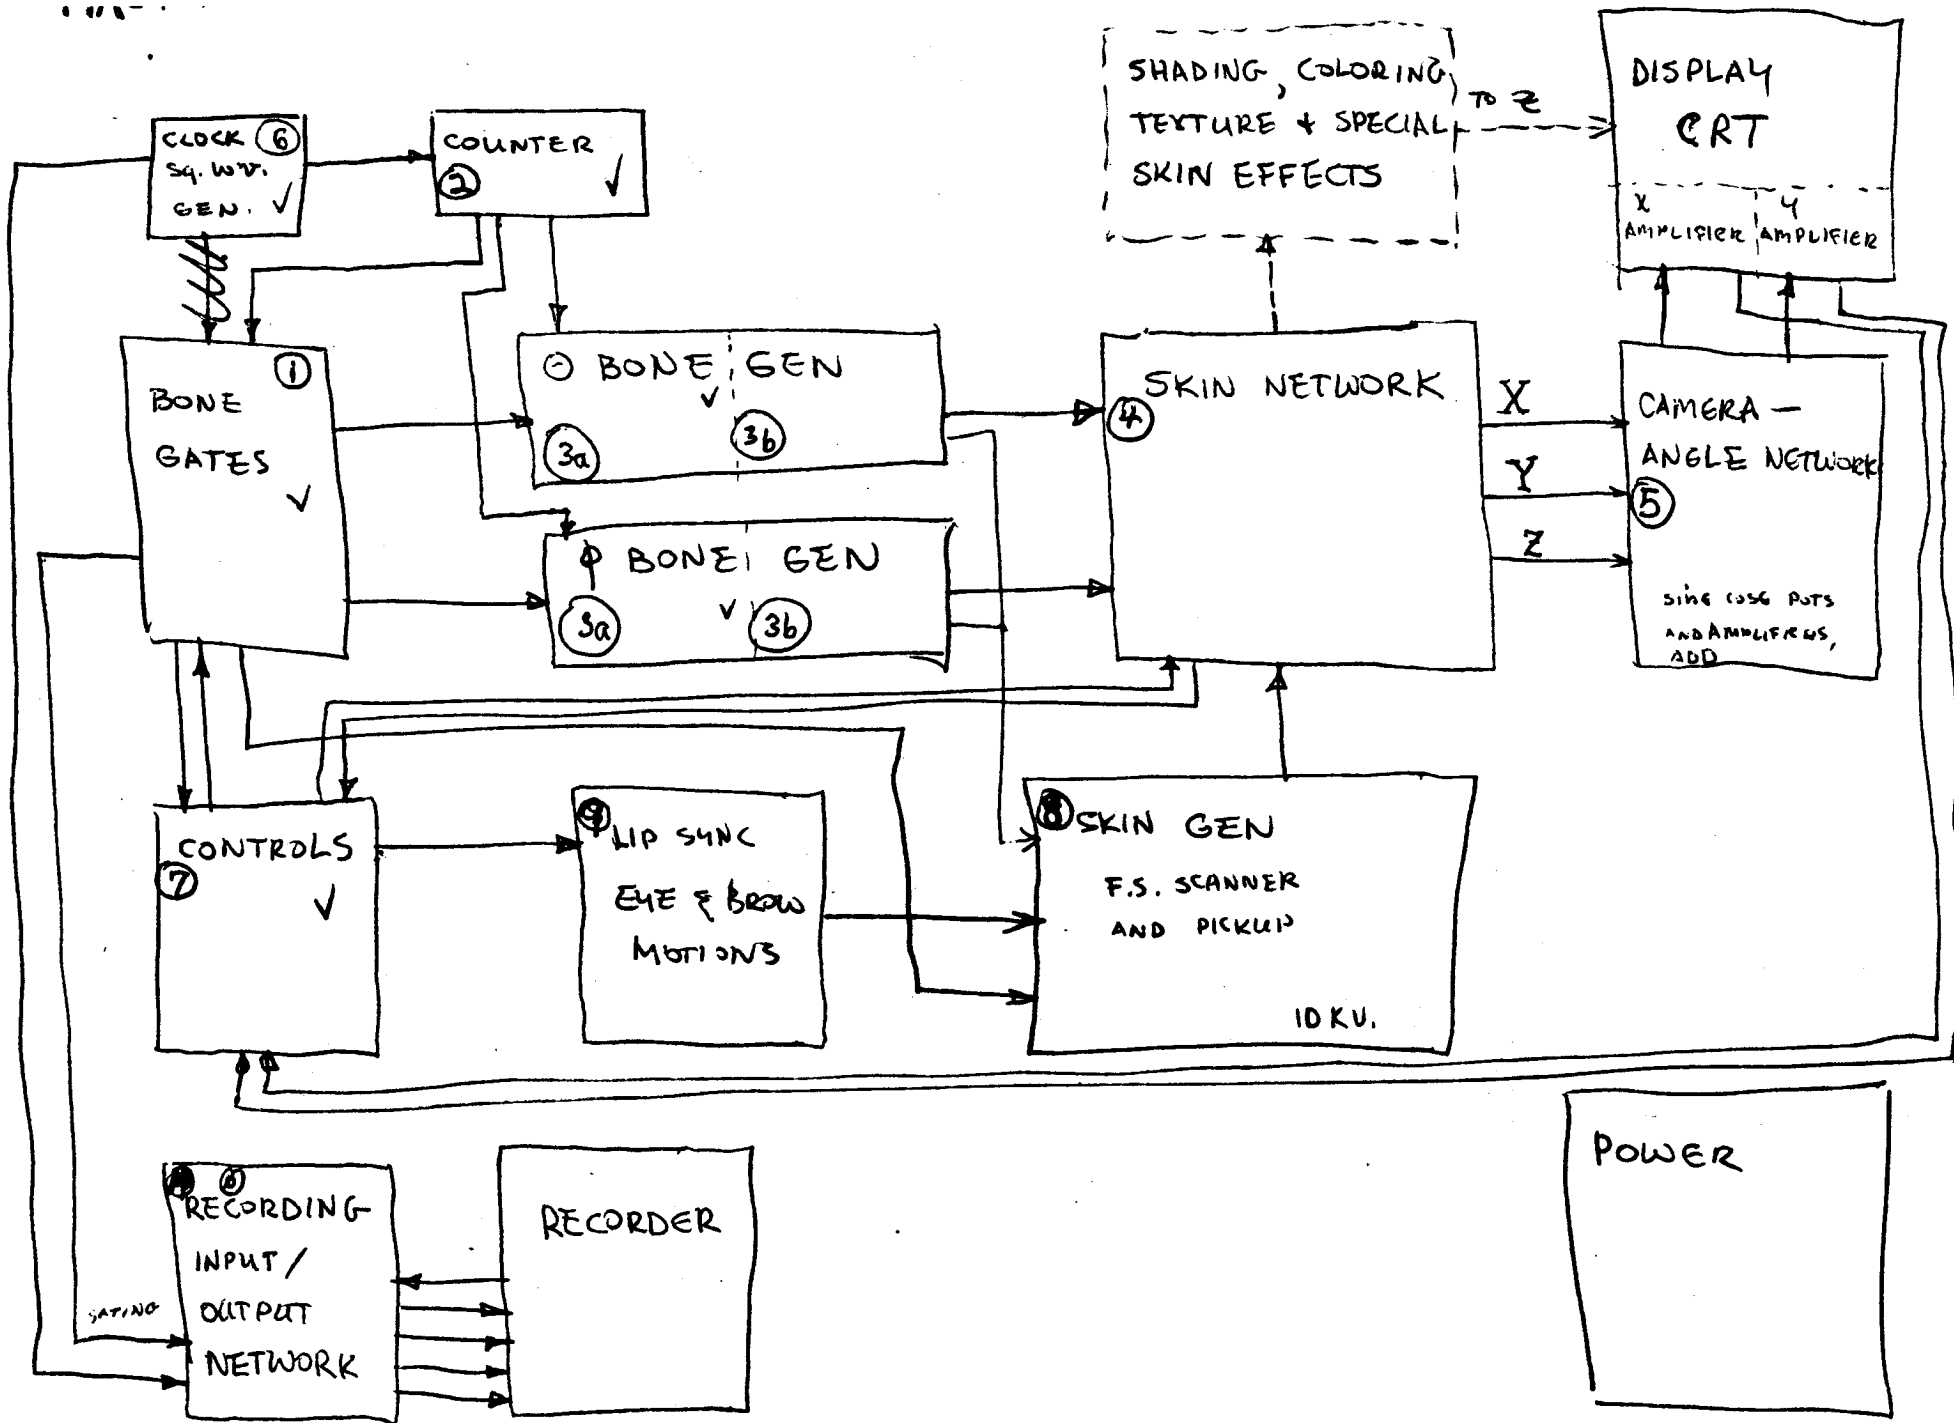 CLOCK 6
SQ. WV.
GEN. ✓
COUNTER
2 ✓
SHADING, COLORING,
TEXTURE & SPECIAL
SKIN EFFECTS
TO Z
DISPLAY
CRT
X
AMPLIFIER
Y
AMPLIFIER
1
BONE
GATES
✓
Θ BONE GEN
✓
3a 3b
ϕ BONE GEN
✓
3a 3b
SKIN NETWORK
4
X
Y
Z
CAMERA —
ANGLE NETWORK
5
SINE COSE POTS
AND AMPLIFIERS,
ADD
CONTROLS
7
✓
9 LIP SYNC
EYE & BROW
MOTIONS
8 SKIN GEN
F.S. SCANNER
AND PICKUP
10 KV.
RECORDING
INPUT /
OUTPUT
NETWORK
GATING
RECORDER
POWER